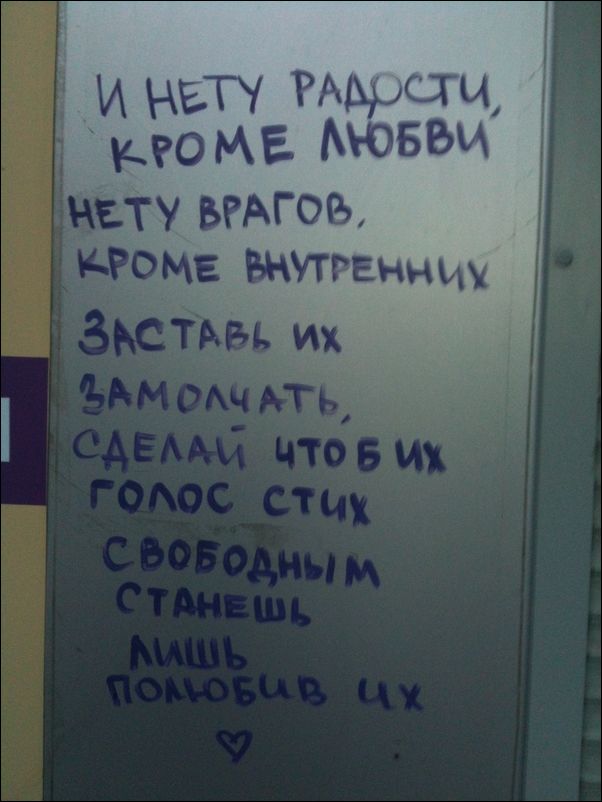 И НЕТУ РАДОСТИ,
КРОМЕ ЛЮБВИ
НЕТУ ВРАГОВ,
КРОМЕ ВНУТРЕННИХ
ЗАСТАВЬ ИХ
ЗАМОЛЧАТЬ,
СДЕЛАЙ ЧТОБ ИХ
ГОЛОС СТИХ
СВОБОДНЫМ
СТАНЕШЬ
ЛИШЬ
ПОЛЮБИВ ИХ
♡